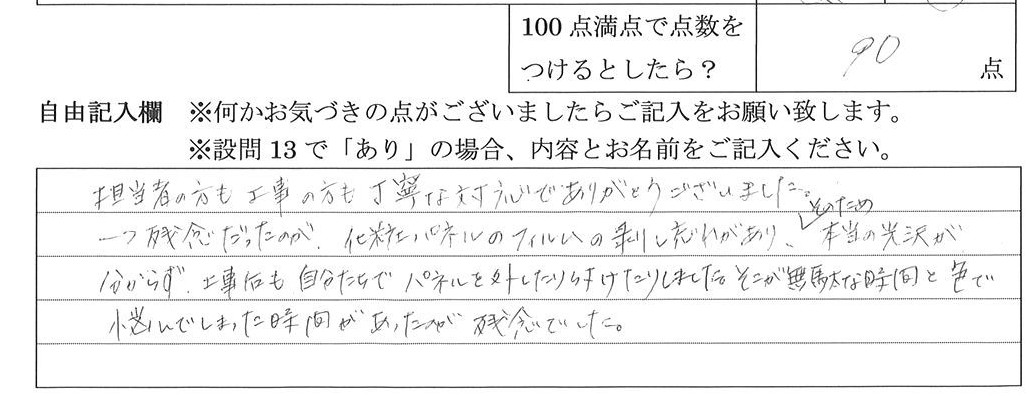 100点満点で点数を
つけるとしたら？
90 点
自由記入欄 ※何かお気づきの点がございましたらご記入をお願い致します。
※設問13で「あり」の場合、内容とお名前をご記入ください。
担当者の方も工事の方も丁寧な対応でありがとうございました。
一つ残念だったのが、化粧パネルのフィルムの剥し忘れがあり、そのため本当の光沢が
分からず、工事后も自分たちでパネルを外したり付けたりしました。そこが無駄な時間と色で
悩んでしまった時間があったのが残念でした。